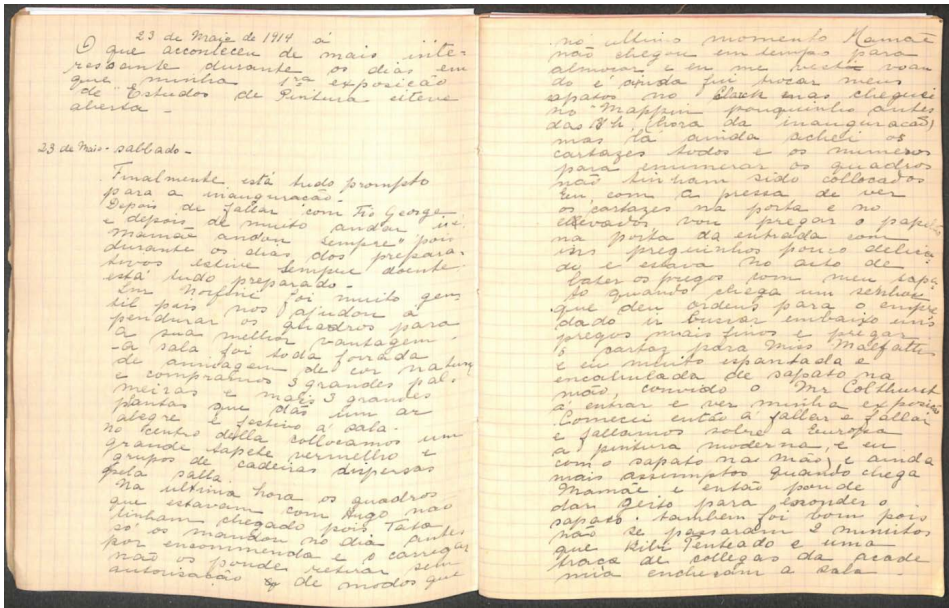 23 de Maio de 1914 á
O que aconteceu de mais inte-
ressante durante os dias em
que minha 1ra exposição
de "Estudos de Pintura esteve
aberta -
23 de Maio - sabbado -
Finalmente está tudo prompto
para a inauguração -
Depois de fallar com Tio George
e depois de muito andar,
Mamãe andou sempre" pois
durante os dias dos prepara-
tivos estive sempre doente
está tudo preparado -
foi muito gen-
til pois nos ajudou a
pendurar os quadros para
a sua melhor vantagem
- A sala foi toda forrada
de aniagem de cor natural
e compramos 3 grandes pal-
meiras e mais 3 grandes
plantas que dás um ar
alegre e festivo á sala -
No centro della collocamos um
grande tapete vermelho e
grupos de cadeiras dispersas
pela salla
Na ultima hora os quadros
que estavam com Hugo não
tinham chegado pois Tata
só os mandou no dia antes
por encommenda e o carregar
não os poude retirar sem
autorisação de modos que
no ultimo momento Mamãe
não chegou em tempo para
almoçar e eu me vesti voan-
do e ainda fui trocar meus
sapatos no Clark mas cheguei
no "Mappin pouquinho antes
das (hora da inauguração)
mas lá ainda achei os
cartazes todos e os numeros
para enumerar os quadros
não tinham sido collocados
Eu, com a pressa de ver
os cartazes na porta e no
elevador vou pregar o papel
na porta da entrada com
uns preguinhos pouco delica
do e estava no acto de
bater os pregos com meu sapa
to quando chega um senhor
que deu ordens para o empre
gado ir buscar embaixo uns
pregos mais finos e pregar
o cartaz para Miss Malfatti
e eu muito espantada e
encabulada de sapato na
mão, convido o Mr Colthurst
á entrar e ver minha exposição
Comecei então á fallar e fallar
e fallamos sobre a Europa
a pintura moderna, e eu
com o sapato na mão, e ainda
mais assumptos quando chega
Mamãe e então poude
dar geito para esconder o
sapato. tambem foi bom pois
não se passaram 2 minuitos
que Bibi Penteado e uma
traça de collegas da acade
mia encheram a sala -